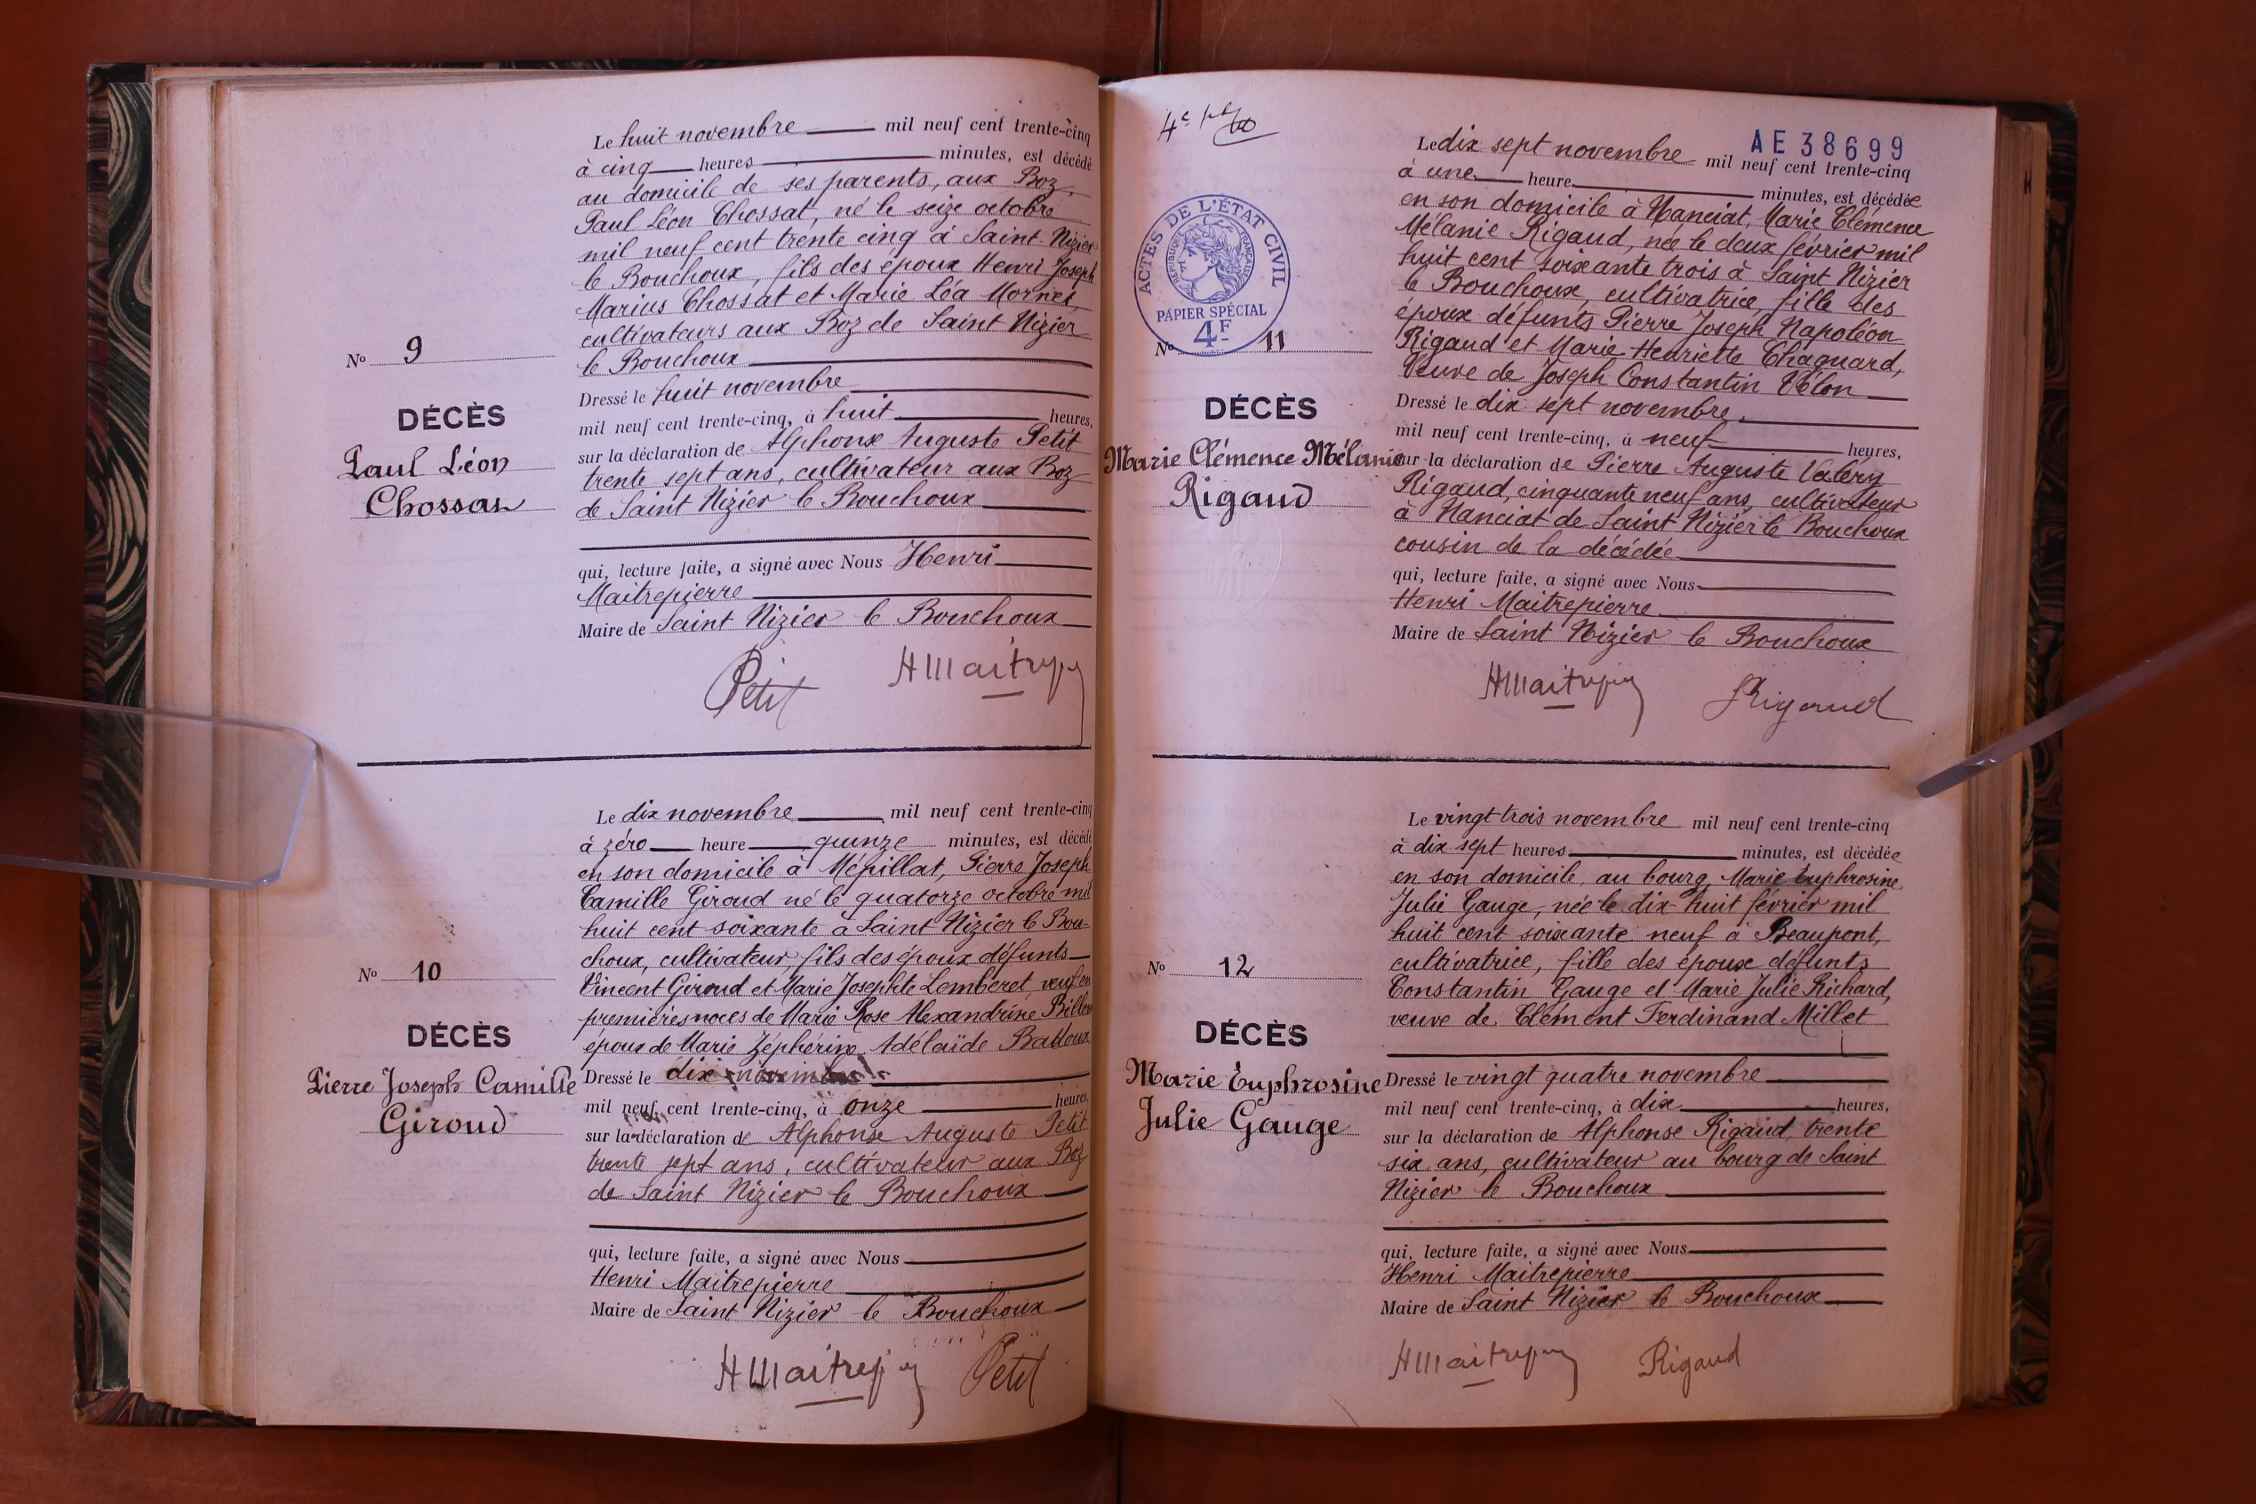 Le huit novembre mil neuf cent trente-cinq
à cinq heures minutes, est décédé
au domicile de ses parents, aux Boz,
Paul Léon Chossat, né le seize octobre
mil neuf cent trente cinq à Saint-Nizier
le Bouchoux, fils des époux Henri Joseph
Marius Chossat et Marie Léa Mornet,
cultivateurs aux Boz de Saint Nizier
le Bouchoux
Dressé le huit novembre
mil neuf cent trente-cinq, à huit heures,
sur la déclaration de Alphonse Auguste Petit
trente sept ans, cultivateur aux Boz
de Saint Nizier le Bouchoux
qui, lecture faite, a signé avec Nous Henri
Maitrepierre
Maire de Saint Nizier le Bouchoux
Petit
HMaitrepi
No 9
DÉCÈS
Paul Léon
Chossat
Le dix novembre mil neuf cent trente-cinq
à zéro heure quinze minutes, est décédé
en son domicile à Mépillat, Pierre Joseph
Camille Giroud né le quatorze octobre mil
huit cent soixante à Saint Nizier le Bou-
choux, cultivateur, fils des époux défunts
Vincent Giroud et Marie Josephte Lemberet, veuf en
premières noces de Marie Rose Alexandrine
époux de Marie Zéphérine Adélaïde
Dressé le dix novembre
mil neuf cent trente-cinq, à onze heures,
sur la déclaration de Alphonse Auguste Petit
trente sept ans, cultivateur aux Boz
de Saint Nizier le Bouchoux
qui, lecture faite, a signé avec Nous
Henri Maitrepierre
Maire de Saint Nizier le Bouchoux
HMaitrepi Petit
No 10
DÉCÈS
Pierre Joseph Camille
Giroud
4e
AE 38699
ACTES DE L'ÉTAT CIVIL
RÉPUBLIQUE FRANÇAISE
PAPIER SPÉCIAL
4F
Le dix sept novembre mil neuf cent trente-cinq
à une heure minutes, est décédée
en son domicile à Nanciat, Marie Clémence
Mélanie Rigaud, née le deux février mil
huit cent soixante trois à Saint Nizier
le Bouchoux, cultivatrice, fille des
époux défunts Pierre Joseph Napoléon
Rigaud et Marie Henriette Chagnard,
Veuve de Joseph Constantin Vélon
Dressé le dix sept novembre
mil neuf cent trente-cinq, à neuf heures,
sur la déclaration de Pierre Auguste Valéry
Rigaud, cinquante neuf ans, cultivateur
à Nanciat de Saint Nizier le Bouchoux
cousin de la décédée
qui, lecture faite, a signé avec Nous
Henri Maitrepierre
Maire de Saint Nizier le Bouchoux
HMaitrepi Rigaud
No 11
DÉCÈS
Marie Clémence Mélanie
Rigaud
Le vingt trois novembre mil neuf cent trente-cinq
à dix sept heures minutes, est décédée
en son domicile, au bourg, Marie Euphrosine
Julie Gauge, née le dix-huit février mil
huit cent soixante neuf à Beaupont,
cultivatrice, fille des époux défunts
Constantin Gauge et Marie Julie Richard,
veuve de Clément Ferdinand Millet
Dressé le vingt quatre novembre
mil neuf cent trente-cinq, à dix heures,
sur la déclaration de Alphonse Rigaud, trente
six ans, cultivateur au bourg de Saint
Nizier le Bouchoux
qui, lecture faite, a signé avec Nous
Henri Maitrepierre
Maire de Saint Nizier le Bouchoux
HMaitrepi Rigaud
No 12
DÉCÈS
Marie Euphrosine
Julie Gauge